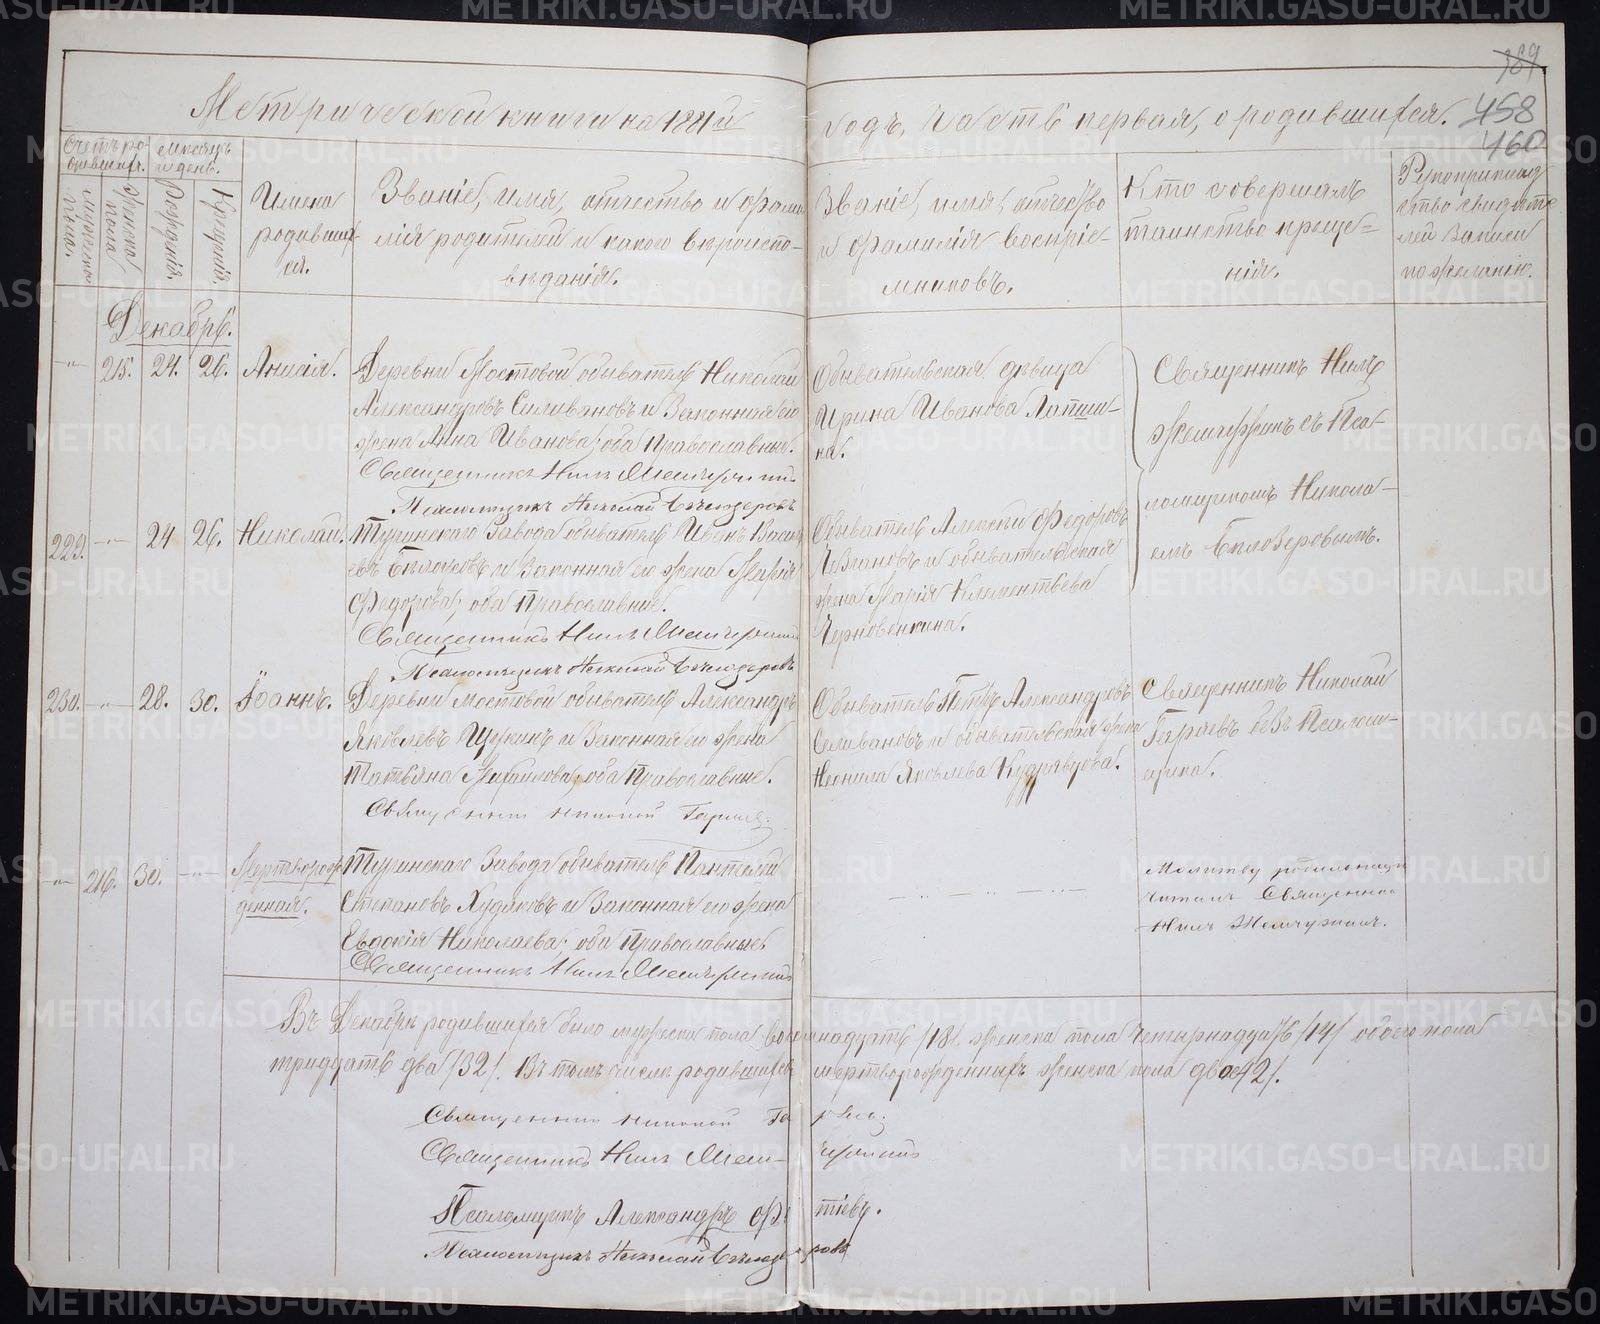 Метрической книги на 1881й годъ, часть первая, о родившихся.
189
458
460
Счетъ ро-
дившихся.
Мѣсяцъ
и день.
Мужеска
пола.
Женска
пола
Рожденія.
Крещенія.
Имена
родивших
ся.
Званіе, имя, отчество и фами
лія родителей и какого вѣроиспо-
вѣданія.
Званіе, имя, отчество
и фамилія воспріе-
мниковъ.
Кто совершалъ
таинство креще=
нія.
Рукоприклад
ство свидѣте
лей записи
по желанію.
Декабрь.
-„- 215. 24. 26. Анисія.
Деревни Мостовой обыватель Николай
Александровъ Селивановъ и законная его
жена Анна Иванова; оба православные.
Священникъ Нилъ
Псаломщикъ Николай Бѣлозеровъ
Обывательская дѣвица
Ирина Иванова Лапши-
на.
Священникъ Нилъ
съ Пса-
ломщикомъ Никола-
емъ Бѣлозеровымъ.
229. -„- 24 26. Николай.
Туринскаго завода обыватель
и законная его жена Марія
Федорова; оба православные.
Священникъ Нилъ
Псаломщикъ Николай Бѣлозеровъ
Обыватель Алексѣй Федоровъ
и обывательская
жена Марія Клементьева
Черновенкина.
230. -„- 28. 30. Іоаннъ.
Деревни Мостовой обыватель Александръ
Яковлевъ Щукинъ и законная его жена
Татьяна Михайлова; оба православные.
Священникъ Николай
Обыватель Петръ Александровъ
Селивановъ и обывательская жена
Неонила Яковлева Кудрявцова.
Священникъ Николай
безъ Псаломщика.
-„- 216. 30. -„- Мертворож
денная.
Туринскаго завода обыватель Пантелей
Степановъ Худяковъ и законная его жена
Евдокія Николаева; оба православные.
Священникъ Нилъ
Молитву родильницѣ
читалъ Священникъ
Нилъ
Въ Декабрѣ родившихся было мужеска пола восемнадцать /18/. женска пола четырнадцать /14/ обоего пола
тридцать два /32/. Въ томъ числѣ родившихся мертворожденныхъ женска пола двое /2/.
Священникъ Николай
Священникъ Нилъ
Псаломщикъ Александръ
Псаломщикъ Николай Бѣлозеровъ
METRIKI.GASO-URAL.RU